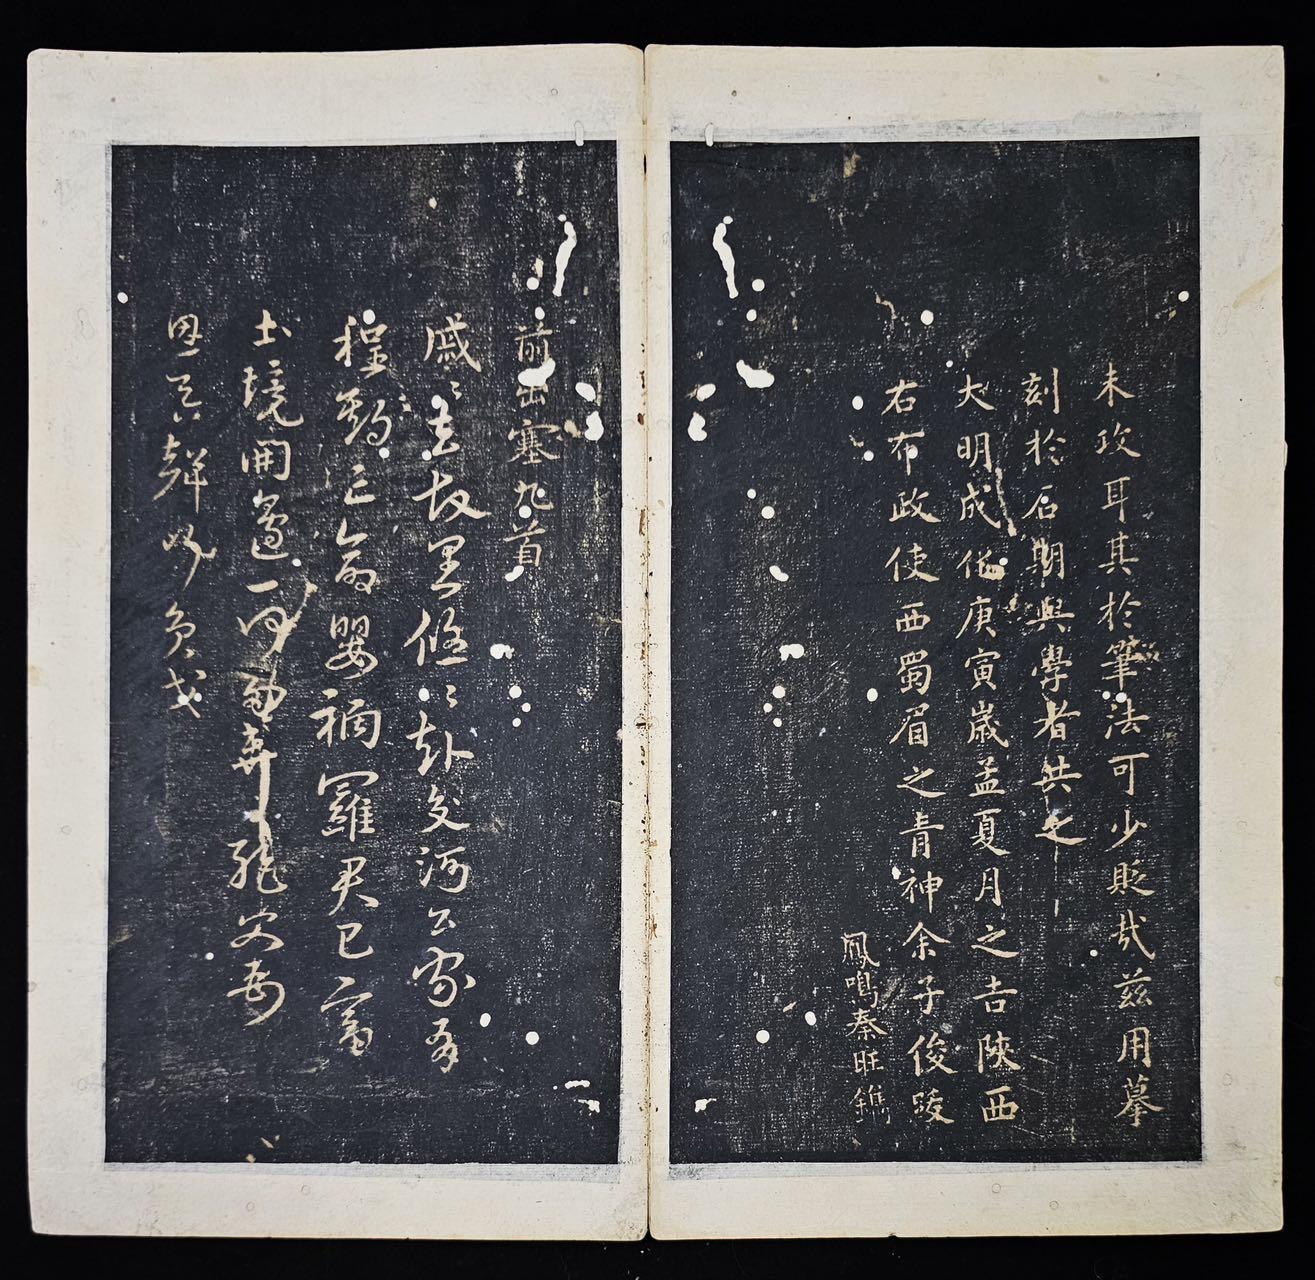 未攷耳其於筆法可少貶哉茲用摹
刻於石期與學者共之
大明成化庚寅歲孟夏月之吉陝西
右布政使西蜀眉之青神余子俊跋
鳳鳴秦旺鐫
前出塞九首
戚〻去故里悠〻赴交河公家有
程期亡命嬰禍羅君已富
土境開邊一何多棄絕父母
恩吞聲行負戈